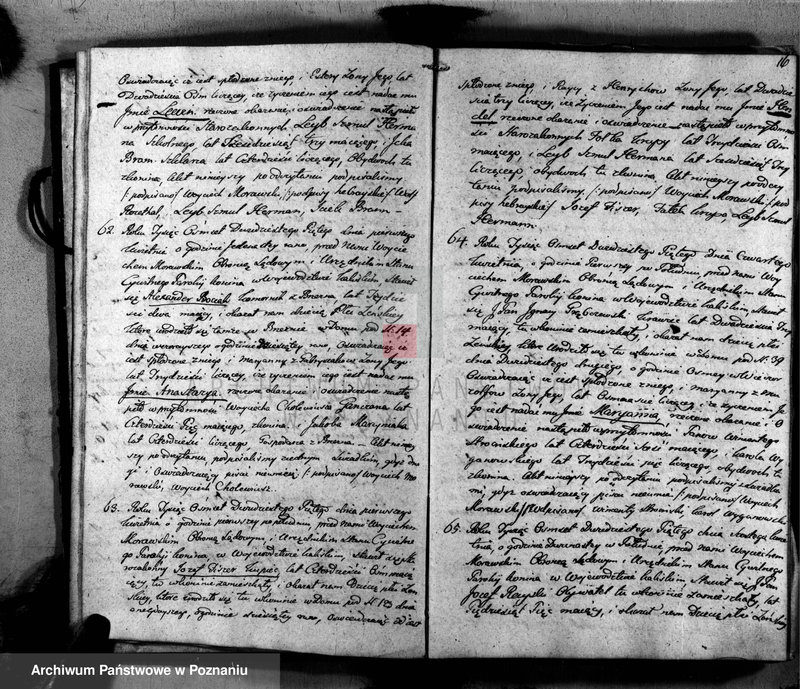 Oświadczaiąc iż iest spłodzone zniego, i Estery Żony Jego, lat
Dwadzieścia Ośm liczącey, iż życzeniem iego iest nadać mu
Jmie Lewin. rzeczone okazanie i oświadczenie nastąpiło
w przytomności Starozakonnych Leyb Szmul Herma
na Szkolnego, lat Sześćdziesiąt Trzy maiącego, Icka
Bram Szklarza lat Czterdzieści liczącego, Obydwoch tu
zKonina, Akt ninieyszy po odczytaniu podpisaliśmy
/:podpisano/ Woyciech Morawski, /:podpisy hebrayskie/
Leyb Szmul Herman, Icek Bram
62. Roku Tysiąc Ośmset Dwudziestego Piątego dnia pierwszego
Kwietnia o godzinie Jedenastey rano, przed Nami Woycie
chem Morawskim Obroncą Sądowym i Urzędnikiem Stanu
Cywilnego Parafij Konina w Woiewodztwie Kaliskim, Stawił
się Alexander Bociek komornik z Brzezna lat Trzydzie
ści dwa maiący, i okazał nam dziecię płci Zenskiey
które urodziło się tamże w Brzeznie w Domu pod N. 14
dnia wczorayszego o godzinie dziesiątey rano, Oświadczaiąc iż
iest spłodzone zniego i Maryanny z Żony Jego
lat Trzydzieści liczącey, iż życzeniem iego iest nadać mu
Jmie Anastazya. rzeczone okazanie i oświadczenie nastą
piło w przytomności Woyciecha Cholewiusza lat
Czterdzieści Pięć maiącego, zKonina i Jakoba Marzyniaka
lat Czterdzieści liczącego, Gospodarza z Brzezna. Akt niniey
szy po odczytaniu podpisaliśmy ziednym Świadkiem, gdyż dru
gi i Oświadczaiący pisać nieumieią /:podpisano/ Woyciech Mo
rawski, Woyciech Cholewiusz.
63. Roku Tysiąc Ośmset Dwudziestego Piątego dnia pierwszego
Kwietnia o godzinie pierwszy popołudniu, przed Nami Woyciechem
Morawskim Obroncą Sądowym, i Urzędnikiem Stanu Cywilne
go Parafij Konina, w Woiewodztwie Kaliskim, Stawił się Sta
rozakonny Jozef Ziser Kupiec, lat Czterdzieści maią
cy, tu wKoninie zamieszkały, i okazał nam Dziecię płci Zen
skiey, które urodziło się tu wKoninie w Domu pod N. 13 dnia
onegdayszego, o godzinie dziesiątey rano, Oświadczaiąc iż iest
16
spłodzone zniego i Rayzy z Henrychow Żony Jego, lat Dwadzie
ścia trzy liczącey, iż życzeniem Jego iest nadać mu Jmie Hen
del rzeczone okazanie i oświadczenie nastąpiło w przytomno
ści Starozakonnych Fołka Krupy lat Trzydzieści Ośm
maiącego, i Leyb Szmul Hermana lat Sześćdziesiąt Trzy
liczącego, obydwoch tu zKonina. Akt ninieyszy po odczy
taniu podpisaliśmy. /:podpisano/ Woyciech Morawski, /:pod
pisy hebrayskie/ Jozef Ziser, Krupa, Leyb Szmul
Hermann.
64. Roku Tysiąc Ośmset Dwudziestego Piątego Dnia Czwartego
Kwietnia, o godzinie Pierwszy po Południu przed nami Woy
ciechem Morawskim Obroncą Sądowym, i Urzędnikiem Stanu
Cywilnego Parafij Konina w Woiewodztwie Kaliskim, Stawił
się J Pan Jgnacy krawiec lat Dwadzieścia Trzy
maiący, tu wKoninie zamieszkały, i okazał nam dziecię płci
Zenskiey, które urodziło się tu wKoninie w Domu pod N. 39
dnia Dwudziestego o godzinie Osmey w Wieczor
Oświadczaiąc iż iest spłodzone zniego, i Maryanny z Ma
Żony Jego, lat Ośmnaście liczącey, iż życzeniem Je
go iest nadać mu Jmie Maryanna, rzeczone okazanie i O
świadczenie nastąpiło w przytomności, Panow Wincentego
Stroinskiego lat Czterdzieści Sześć maiącego, Karola Wy
ganowskiego lat Trzydzieści pięć liczącego, obydwoch tu
zKonina. Akt ninieyszy po odczytaniu podpisaliśmy zeświadka
mi, gdyż oświadczaiący pisać nieumie /:podpisano/ Woyciech
Morawski /:podpisano/ Wincenty Stroinski, Karol Wyganowski
65. Roku Tysiąc Ośmset dwudziestego Piątego dnia Szóstego Kwie
tnia, o godzinie Dwunastey w Południe przed nami Woyciechem
Morawskim Obroncą Sądowym i Urzędnikiem Stanu Cywilnego
Parafij Konina w Woiewodztwie Kaliskim Stawił się J Pan
Jozef Obywatel tu wKoninie Zamieszkały, lat
Pięćdziesiąt Pięć maiący, i okazał nam Dziecię płci Zenskiey
Archiwum Państwowe w Poznaniu